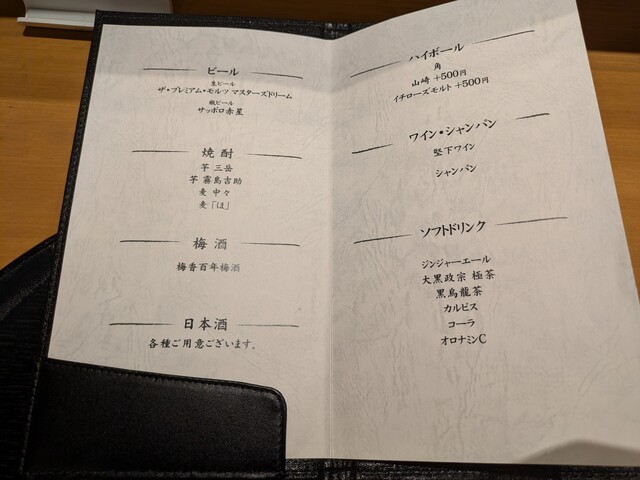 ビール
生ビール
ザ・プレミアム・モルツ マスターズドリーム
瓶ビール
サッポロ赤星
焼酎
芋 三岳
芋 霧島吉助
麦 中々
麦 「ほ」
梅酒
梅香百年梅酒
日本酒
各種ご用意ございます。
ハイボール
角
山崎 +500円
イチローズモルト +500円
ワイン・シャンパン
堅下ワイン
シャンパン
ソフトドリンク
ジンジャーエール
大黒政宗 極茶
黒烏龍茶
カルピス
コーラ
オロナミンC